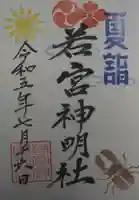 夏詣
若宮神明社
令和五年七月
日